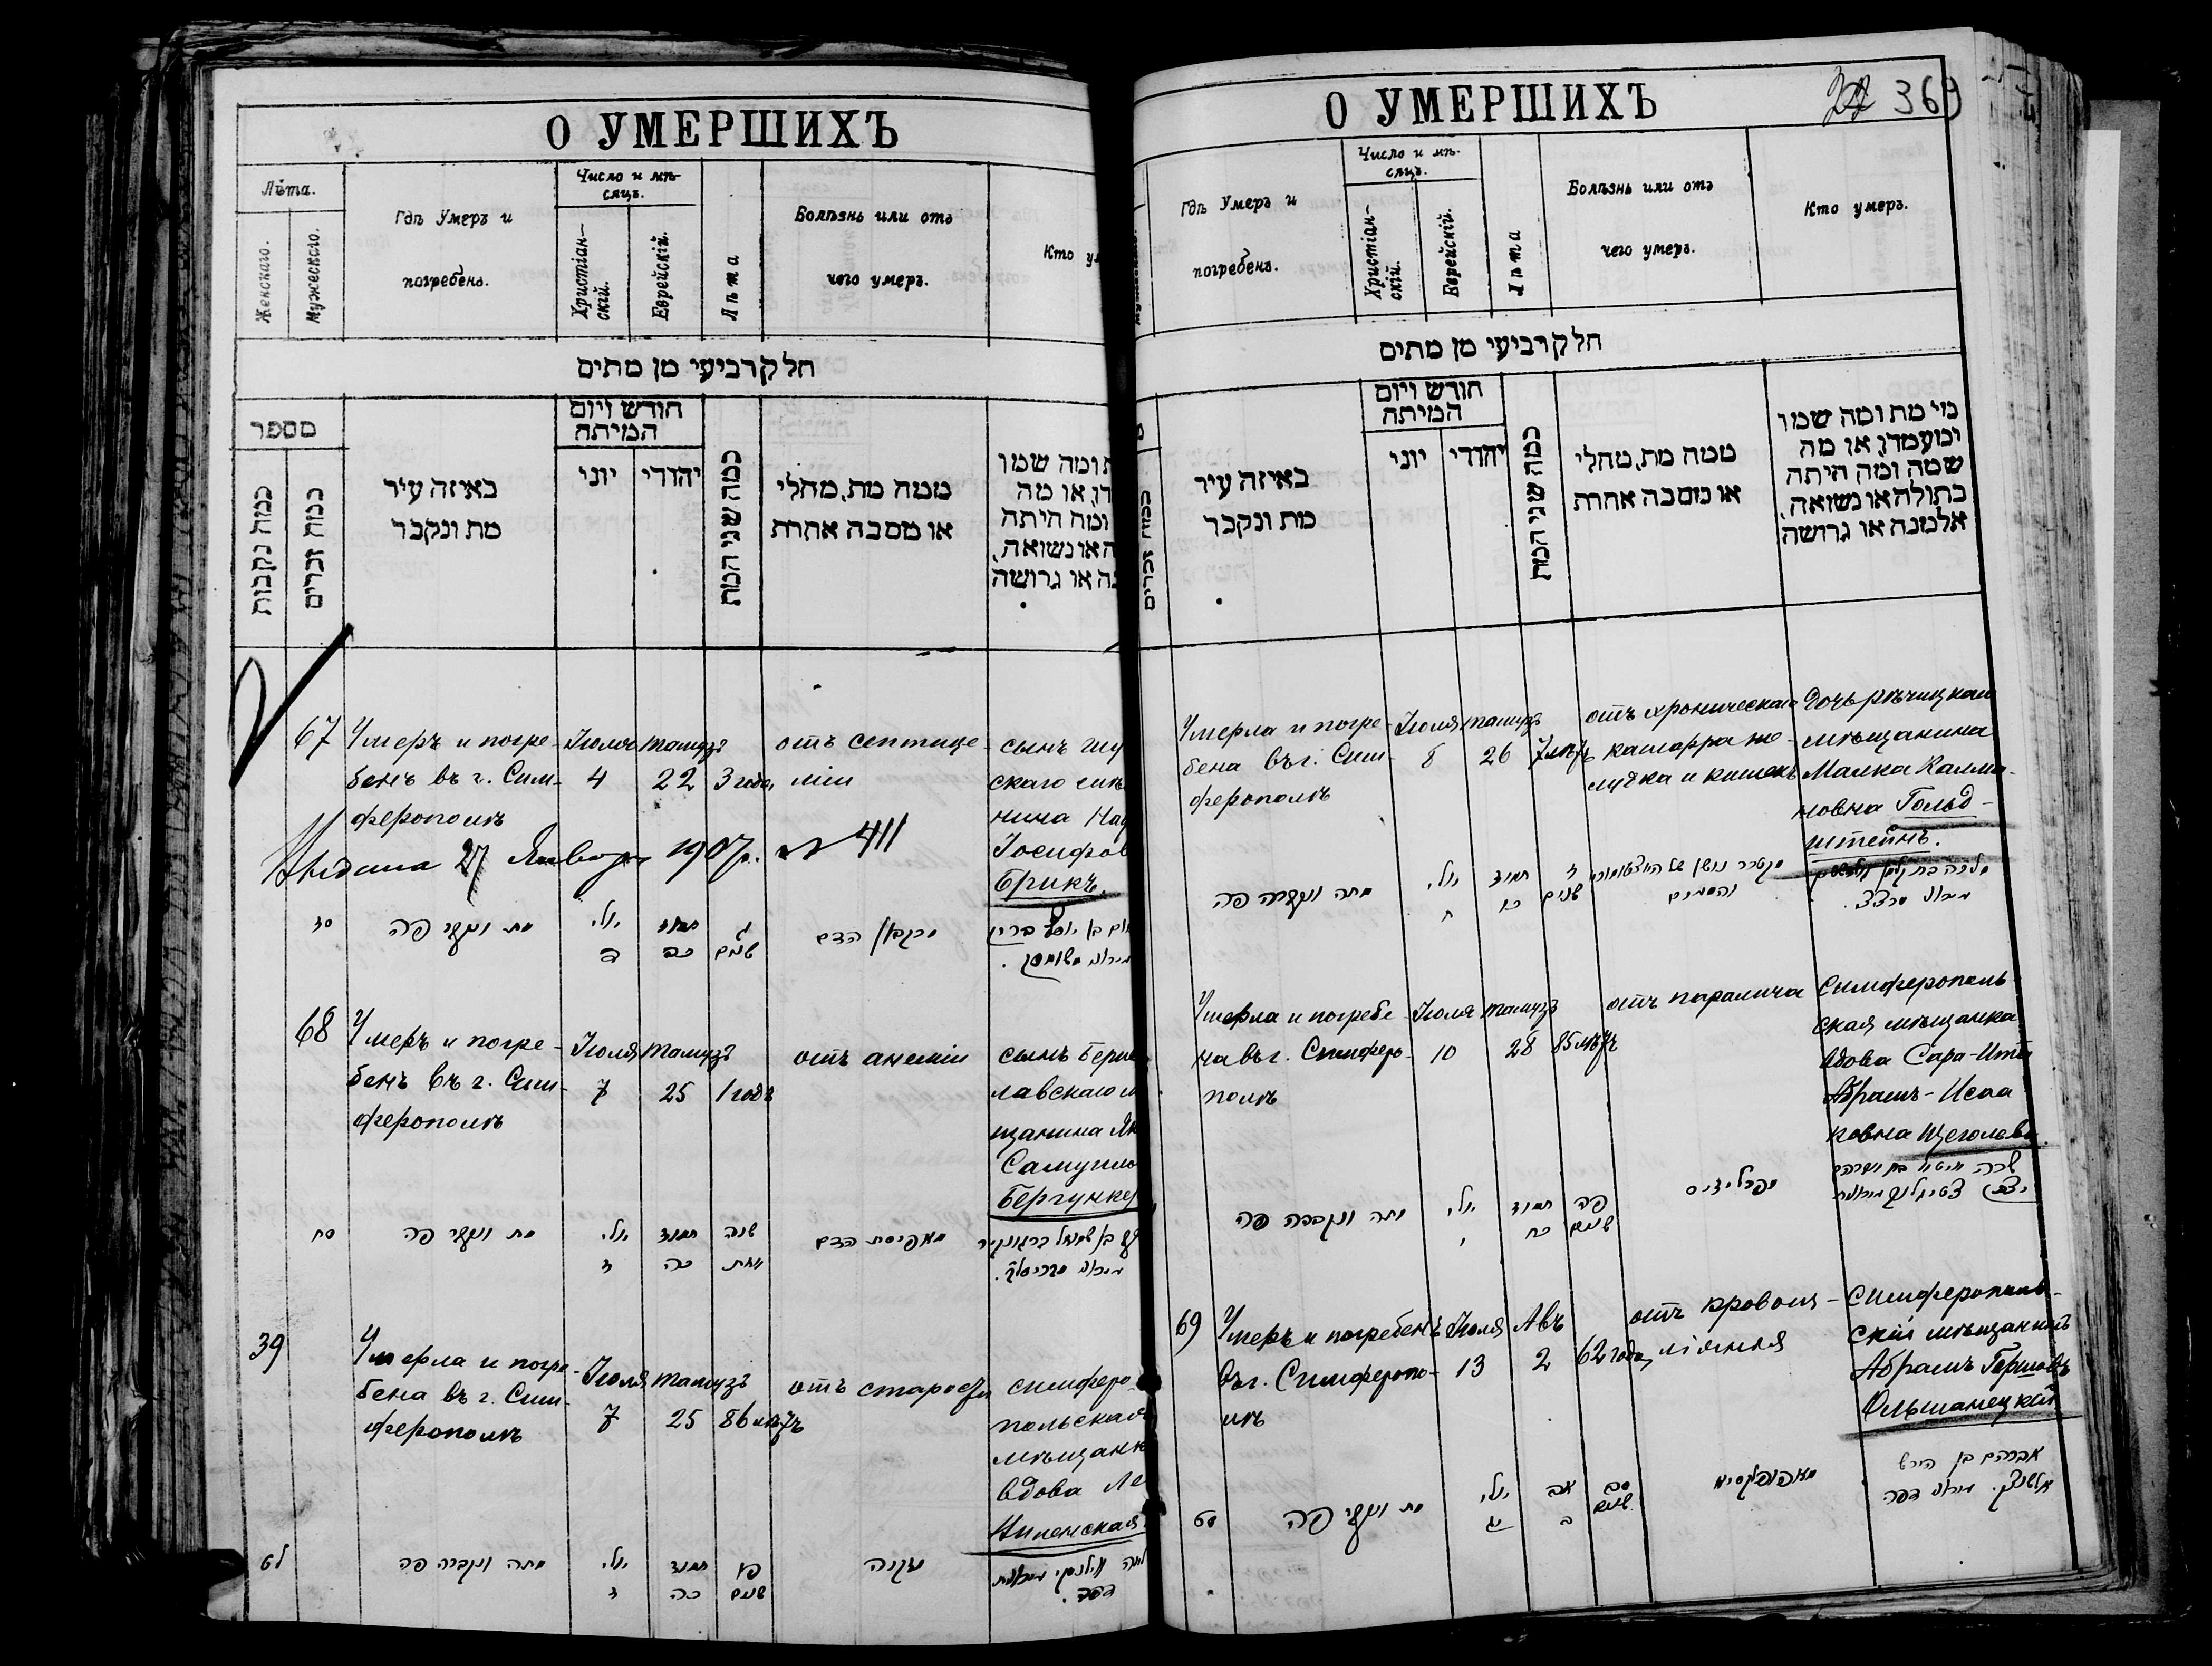 О УМЕРШИХЪ
Лѣта.
Женскаго.
Мужескаго.
Гдѣ Умеръ и
погребенъ.
Число и мѣ-
сяцъ.
Христіан-
скій.
Еврейскій.
Лѣта
Болѣзнь или отъ
чего умеръ.
Кто у
חלק רביעי מן מתים
מספר
כמה נקבות
כמה זכרים
באיזה עיר
מת ונקבר
חודש ויום
המיתה
יוני
יהודי
כמה שני המת
ממה מת, מחלי
או מסבה אחרת
ומה שמו
או מה
ומה היתה
או נשואה,
או גרושה
67
Умеръ и погре-
бенъ въ г. Сим-
ферополѣ
Іюля
4
Тамузъ
22
3 года,
отъ септице-
міи
сынъ
скаго
нина
Іосифов
Брикъ.
27 Января 1907 г. № 411
מת ונקבר פה
יולי
ד
תמוז
כב
ג
שנים
68
Умеръ и погре-
бенъ въ г. Сим-
ферополѣ
Іюля
7
Тамузъ
25
1 годъ
отъ анеміи
сынъ Бери
лавскаго м
щанина Як
Самуило
Бергунке
סח
מת ונקבר פה
יולי
ז
תמוז
כה
שנה
אחת
39
Умерла и погре-
бена въ г. Сим-
ферополѣ
Іюля
7
Тамузъ
25
86 лѣтъ
отъ старости
симферо-
польская
мѣщанк
вдова Ле
לט
מתה ונקברה פה
יולי
ז
תמוז
כה
פו
שנים
זקנה
О УМЕРШИХЪ
369
Гдѣ Умеръ и
погребенъ.
Число и мѣ-
сяцъ.
Христіан-
скій.
Еврейскій.
Лѣта
Болѣзнь или отъ
чего умеръ.
Кто умеръ.
חלק רביעי מן מתים
כמה זכרים
באיזה עיר
מת ונקבר
חודש ויום
המיתה
יוני
יהודי
כמה שני המת
ממה מת, מחלי
או מסבה אחרת
מי מת ומה שמו
ומעמדו, או מה
שמה ומה היתה
בתולה או נשואה,
אלמנה או גרושה
Умерла и погре-
бена въ г. Сим-
ферополѣ
Іюля
8
Тамузъ
26
7 лѣтъ
отъ хроническаго
катарра же-
лудка и кишекъ
Дочь рѣчицкаго
мѣщанина
Малка Калма-
новна Гольд-
штейнъ.
מתה ונקברה פה
יולי
ח
תמוז
כו
ז
שנים
Умерла и погребе-
на въ г. Симферо-
полѣ
Іюля
10
Тамузъ
28
85 лѣтъ
отъ паралича
Симферополь-
ская мѣщанка
вдова Сара-Ита
Абрамъ-Исаа-
ковна Щеголева.
מתה ונקברה פה
יולי
י
תמוז
כח
פה
שנים
69
Умеръ и погребенъ
въ г. Симферопо-
лѣ
Іюля
13
Авъ
2
62 года,
отъ кровоиз-
ліянія
Симферополь-
скій мѣщанинъ
Абрамъ Гершовъ
Ольшанецкій
סט
מת ונקבר פה
יולי
יג
אב
ב
סב
שנים
אברהם בן הירש